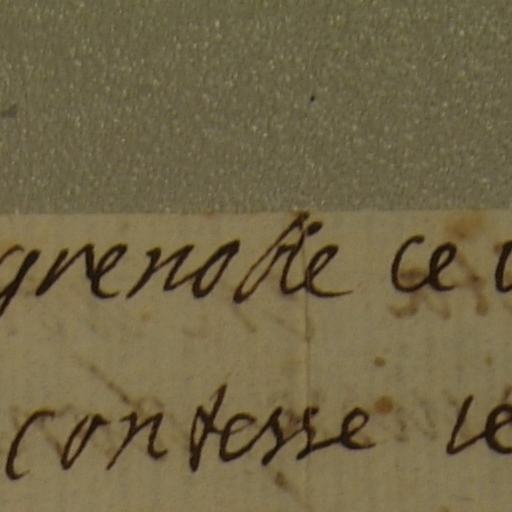 grenoble ce
contesse le